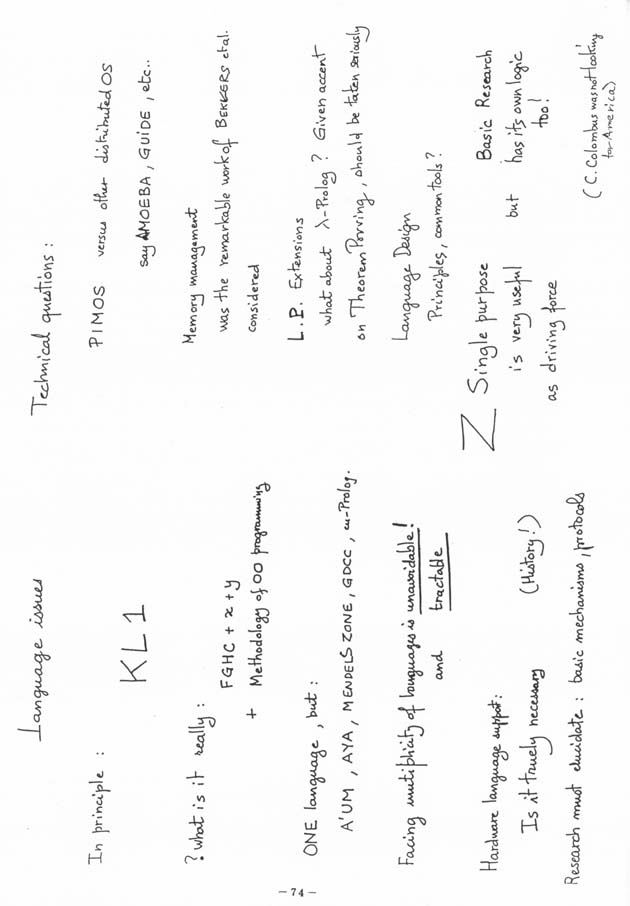 Language issues
In principle :
KL1
? what is it really :
FGHC + x + y
+ Methodology of OO programming
ONE language, but :
A'UM, AYA, MENDELS ZONE, GDCC, cu-Prolog.
Facing mutiplicity of languages is unavoidable!
and tractable
Hardware language support:
Is it truely necessary (History!)
Research must elucidate : basic mechanisms, protocols
Technical questions :
PIMOS versus other distributed OS
say AMOEBA, GUIDE, etc..
Memory management
was the remarkable work of BEKKERS et al.
considered
L.P. Extensions
what about λ-Prolog? Given accent
on Theorem Porving, should be taken seriously
Language Design
Principles, common tools?
Z Single purpose but Basic Research
is very useful has its own logic
as driving force too!
(C. Colombus was not lookin'
for America)
-74-